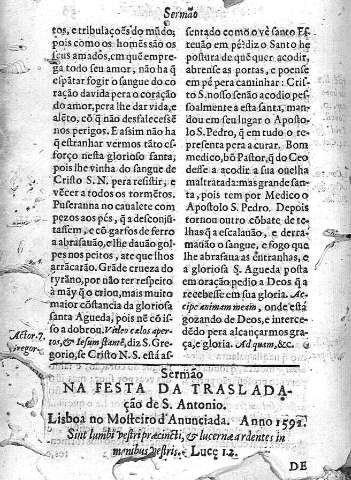 Sermão
tos, e tribulações do mũdo;
pois como os homẽs são os
seus amados, em quẽ emprega
todo seu amor, não ha q̃
espãtar fogir o sangue do coração
da vida pera o coração
do amor, pera lhe dar vida, e
alẽto, cõ q̃ não desfalecesse
nos perigos. E assim não ha
q̃ estranhar vermos tãto esforço
nesta gloriosa santa,
pois lhe vinha do sangue de
Cristo S. N. pera resistir, e
vẽcer a todos os tormẽtos.
Puseranna no caualete com
pezos aos pés, q̃ a desconjũtassem,
e cõ garfos de ferro
a abrasauão, e lhe dauão golpes
nos peitos, ate que lhos
arrãcarão. Grãde crueza do
tyrãno, por não ter respeito
á mãy q̃ o criou, mais muito
maior cõstancia da gloriosa
santa Agueda, pois nẽ cõ isso
a dobrou. Video cælos apertos,
& Iesum stantẽ, diz S. Gregorio,
se Cristo N. S. está as-
Actor. 7.
Gregor.
sentado como o vè santo Esteuão
em pé? diz o Santo he
postura de quẽ quer acodir,
abrense as portas, e poense
em pé pera caminhar: Cristo
S. nosso senão acodio pessoalmente
a esta santa, mandou
em seu lugar o Apostolo
S. Pedro, q̃ em tudo o representa
pera a curar. Bom
medico, bõ Pastor, q̃ do Ceo
desse a acodir a sua ouelha
maltratada: mas grande santa,
pois tem por Medico o
Apostolo S. Pedro. Depois
tornou outro cõbate de telhas
q̃ a escalauão, e derramauão
o sangue, e fogo que
lhe abrasaua as entranhas, e
a gloriosa S. Agueda posta
em oração pedio a Deos q̃ a
recebesse em sua gloria. Accipe
animam meam, onde está
gozando de Deos, e intercedẽdo
pera alcançarmos graça,
e gloria. Ad quam, &c.
Sermão
NA FESTA DA TRASLADAção
de S. Antonio.
Lisboa no Mosteiro d'Anunciada. Anno 1591.
Sint lumbi vestri præcincti, & lucernæ ardentes in
manibus vestris. Lucę 12.
DE